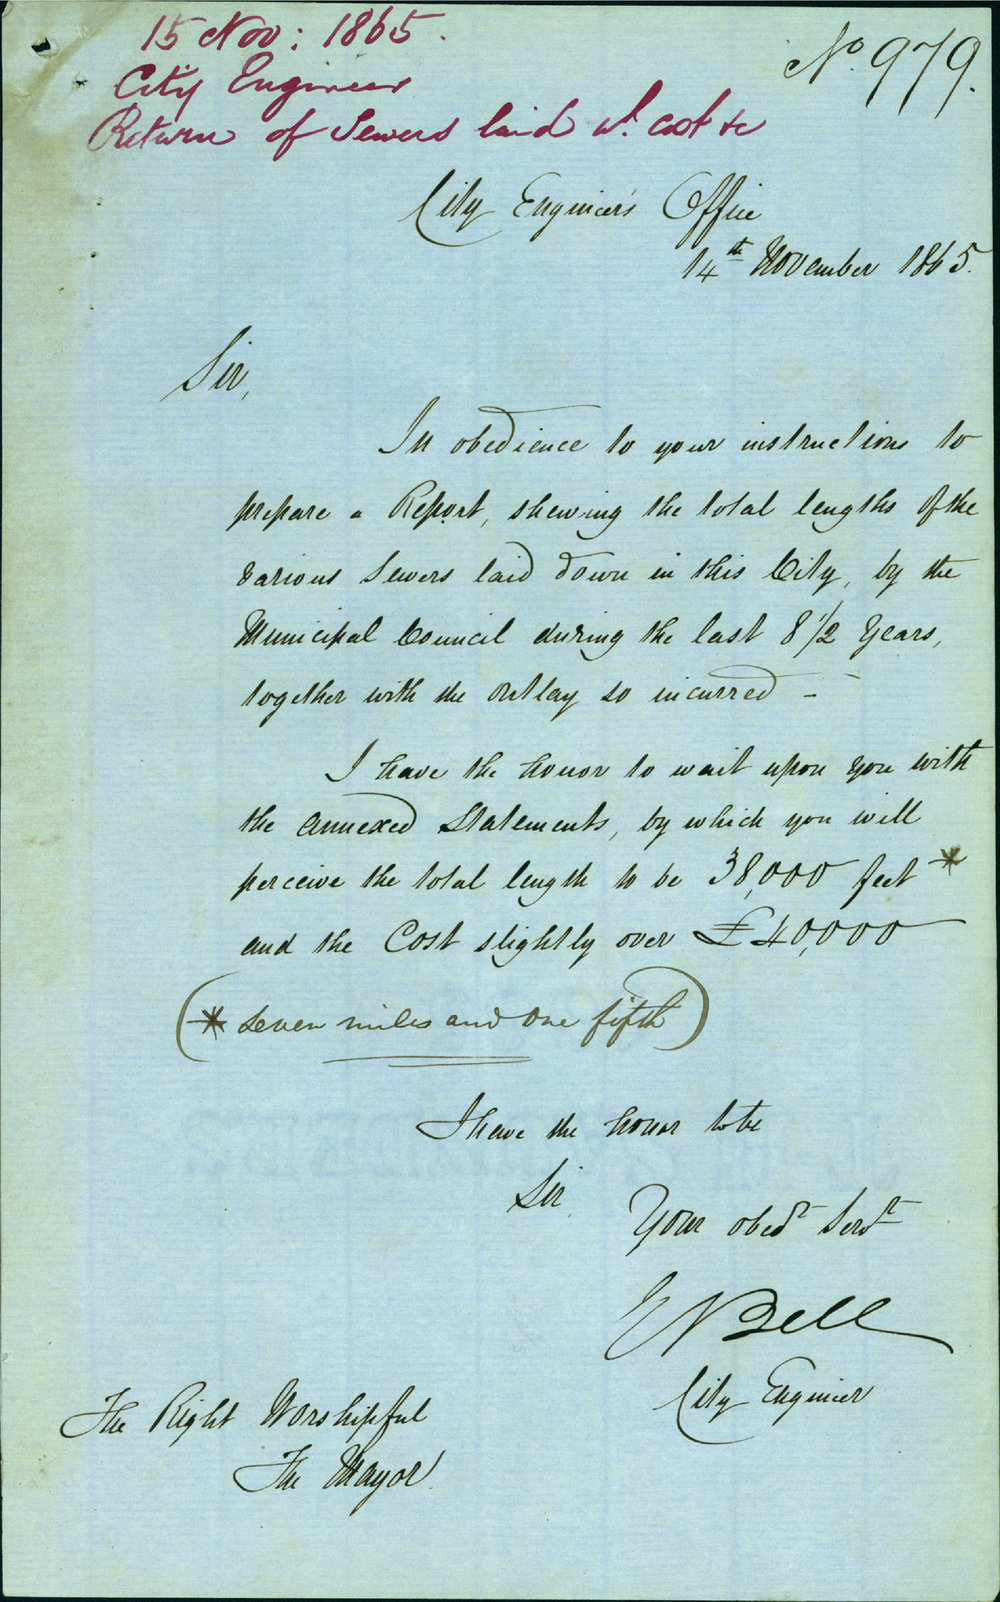 15 Nov: 1865.
No. 979.
City Engineer
Return of Sewers laid wt. cost &c
City Engineer's Office
14th November 1865.
Sir,
In obedience to your instructions to
prepare a Report, shewing the total lengths of the
various Sewers laid down in this City, by the
Municipal Council during the last 8 1/2 Years,
together with the outlay so incurred –
I have the honor to wait upon you with
the annexed Statements, by which you will
perceive the total length to be 38,000 feet *
and the Cost slightly over £40,000
(* seven miles and one fifth)
I have the honor to be
Sir
Your obedt Servt
E Bell
City Engineer
The Right Worshipful
The Mayor.